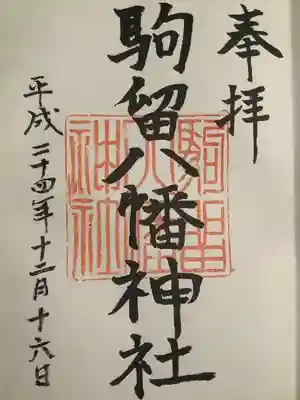 奉拝
駒留八幡神社
平成二十四年十二月十六日
駒留
八幡
神社